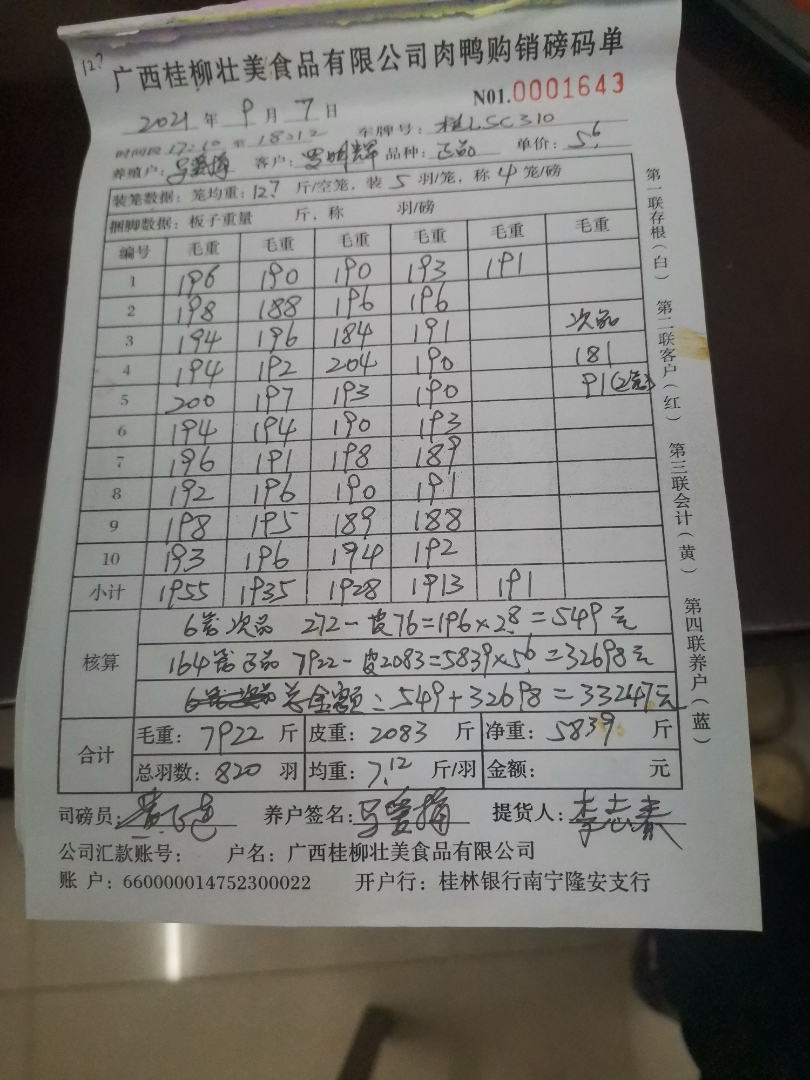 127
广西桂柳壮美食品有限公司肉鸭购销磅码单
NO1.0001643
2021 年 9 月 7 日
时间段 17:10 至 18:12 车牌号: 桂LSC310
养殖户: 客户: 罗明辉 品种: 正品 单价: 5.6
装笼数据: 笼均重: 12.7 斤/空笼, 装 5 羽/笼, 称 4 笼/磅
捆脚数据: 板子重量 斤, 称 羽/磅
编号 毛重 毛重 毛重 毛重 毛重 毛重
1 196 190 190 193 191
2 198 188 196 196
3 194 196 184 191 次品
4 194 192 204 190 181
5 200 197 193 190 91(2笼)
6 194 194 190 193
7 196 191 198 189
8 192 196 190 191
9 198 195 189 188
10 193 196 194 192
小计 1955 1935 1928 1913 191
核算
6笼次品 272-皮76=196×2.8=549元
164笼正品 7922-皮2083=5839×5.6=32698元
总金额:549+32698=33247元
合计
毛重: 7922 斤 皮重: 2083 斤 净重: 5839 斤
总羽数: 820 羽 均重: 7.12 斤/羽 金额: 元
司磅员: 养户签名: 提货人: 李志春
公司汇款账号: 户名: 广西桂柳壮美食品有限公司
账 户: 660000014752300022 开户行: 桂林银行南宁隆安支行
第一联存根(白) 第二联客户(红) 第三联会计(黄) 第四联养户(蓝)